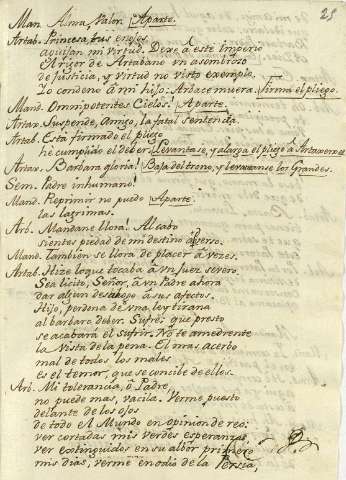 25
Man. Alma, valor. Aparte.
Artab. Princesa, tus enojos
aquejan mi virtud. Dexe á este imperio
El rigor de Artabano un asombroso
de justicia, y virtud no visto exemplo.
Yo condeno á mi hijo: Arbace muera. Firma el pliego.
Mand. Omnipotentes Cielos! Aparte.
Artax. Suspende, Amigo, la fatal sentencia.
Artab. Está firmado el pliego
hé cumplido el deber. Levantase, y alarga el pliego á Artaxerxes
Artax. Barbara gloria! Baja del trono, y levantanse los Grandes.
Sem. Padre inhumano!
Mand. Reprimir no puedo Aparte.
las lagrimas.
Arb. Mandane llora! Al cabo
sientes piedad de mi destino adverso.
Mand. Tambien se llora de placer á vezes.
Artab. Hize lo que tocaba á un Juez severo.
Sea licito, Señor, á un Padre ahora
dar algun desahogo à sus afectos.
Hijo, perdona de una ley tirana
al barbaro deber. Sufre: que presto
se acabará el sufrir. No te amedrente
la vista de la pena. El mas acerbo
mal de todos los males
es el temor, que se concibe de ellos.
Arb. Mi tolerancia, ó Padre,
no puede mas, vacila. Verme puesto
delante de los ojos
de todo el Mundo en opinion de reo:
ver cortadas mis verdes esperanzas,
ver extinguidos en su albor primero
mis dias, verme en odio de la Persia,